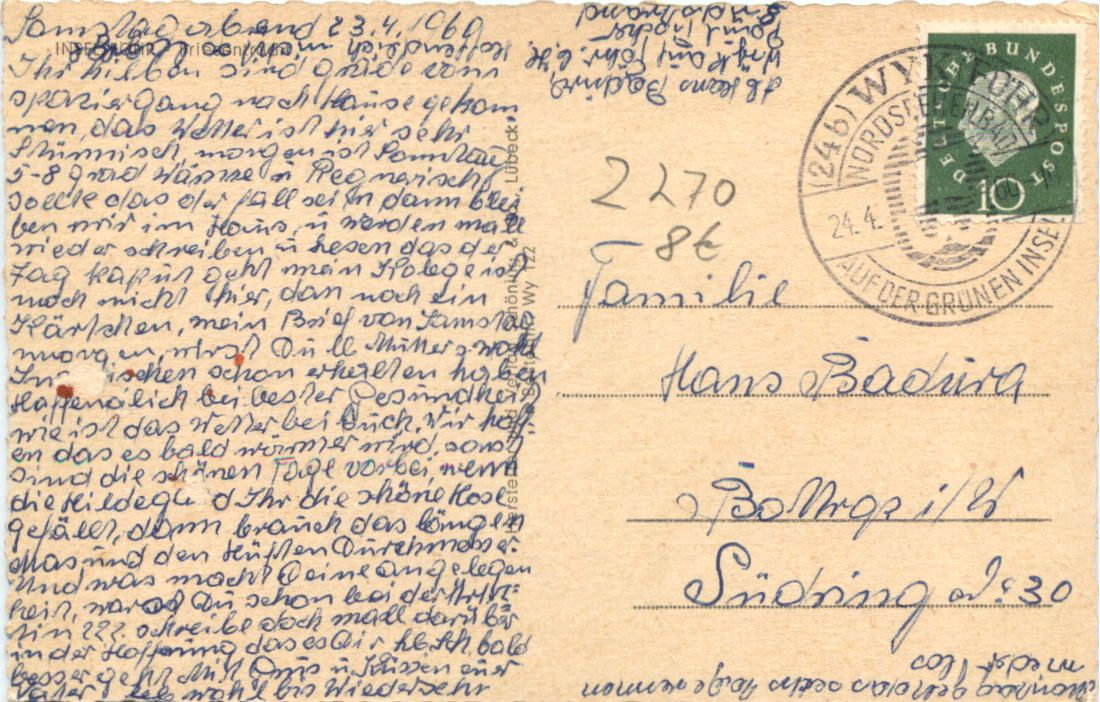 Samstag abend 23.4.1960
INSEL FÖHR
Ihr lieben sind grade vom
spaziergang nach Hause gekom
men, das Wetter ist hier sehr
Stürmisch, morgen ist Sonntag
5-8 grad Wärme u Regnerisch
sollte das der fall sein dann blei
ben wir im Haus, u werden mall
wieder schreiben u lesen das der
Tag kaput geht mein Kolege ist
noch nicht hier, dan noch ein
Kärtchen, mein Brief von Samstag
morgen, wirst Du ll Mutter wohl
schon erhalten haben
Hoffendlich bei bester Gesundheit
wie ist das Wetter bei Euch. Wir hoff
en das es bald wärmer wird, sonst
sind die schönen Tage vorbei, wenn
die Hildegard Ihr die schöne Hose
gefällt, dann brauch das längen
Mas und den Hüften Durchmesser.
Und was macht Deine angelegen
heit, warst Du schon bei der Ärtz=
tin ??? schreibe doch mall darüber
in der Hoffnung das es Dir bald
besser geht Mit Grus u Küssen euer
Vater Leb wohl bis Wiedersehn
Montag geht das
wieder los
Abs Hans Badura
Wyk auf Föhr
Südstrand
Lübeck
Wy 122
DEUTSCHE BUNDESPOST
10
(24b) WYK (FÖHR)
NORDSEEHEILBAD
24.4.
AUF DER GRÜNEN INSEL
2270
8€
Familie
Hans Badura
Bottrop i/W
Südring No 30